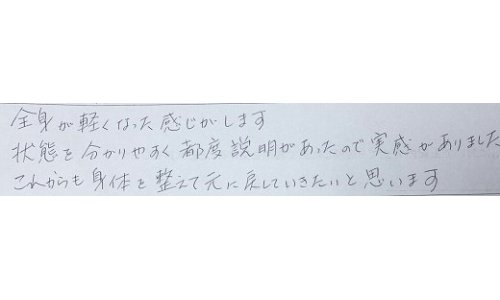 全身が軽くなった感じがします
状態を分かりやすく都度説明があったので実感がありました
これからも身体を整えて元に戻していきたいと思います